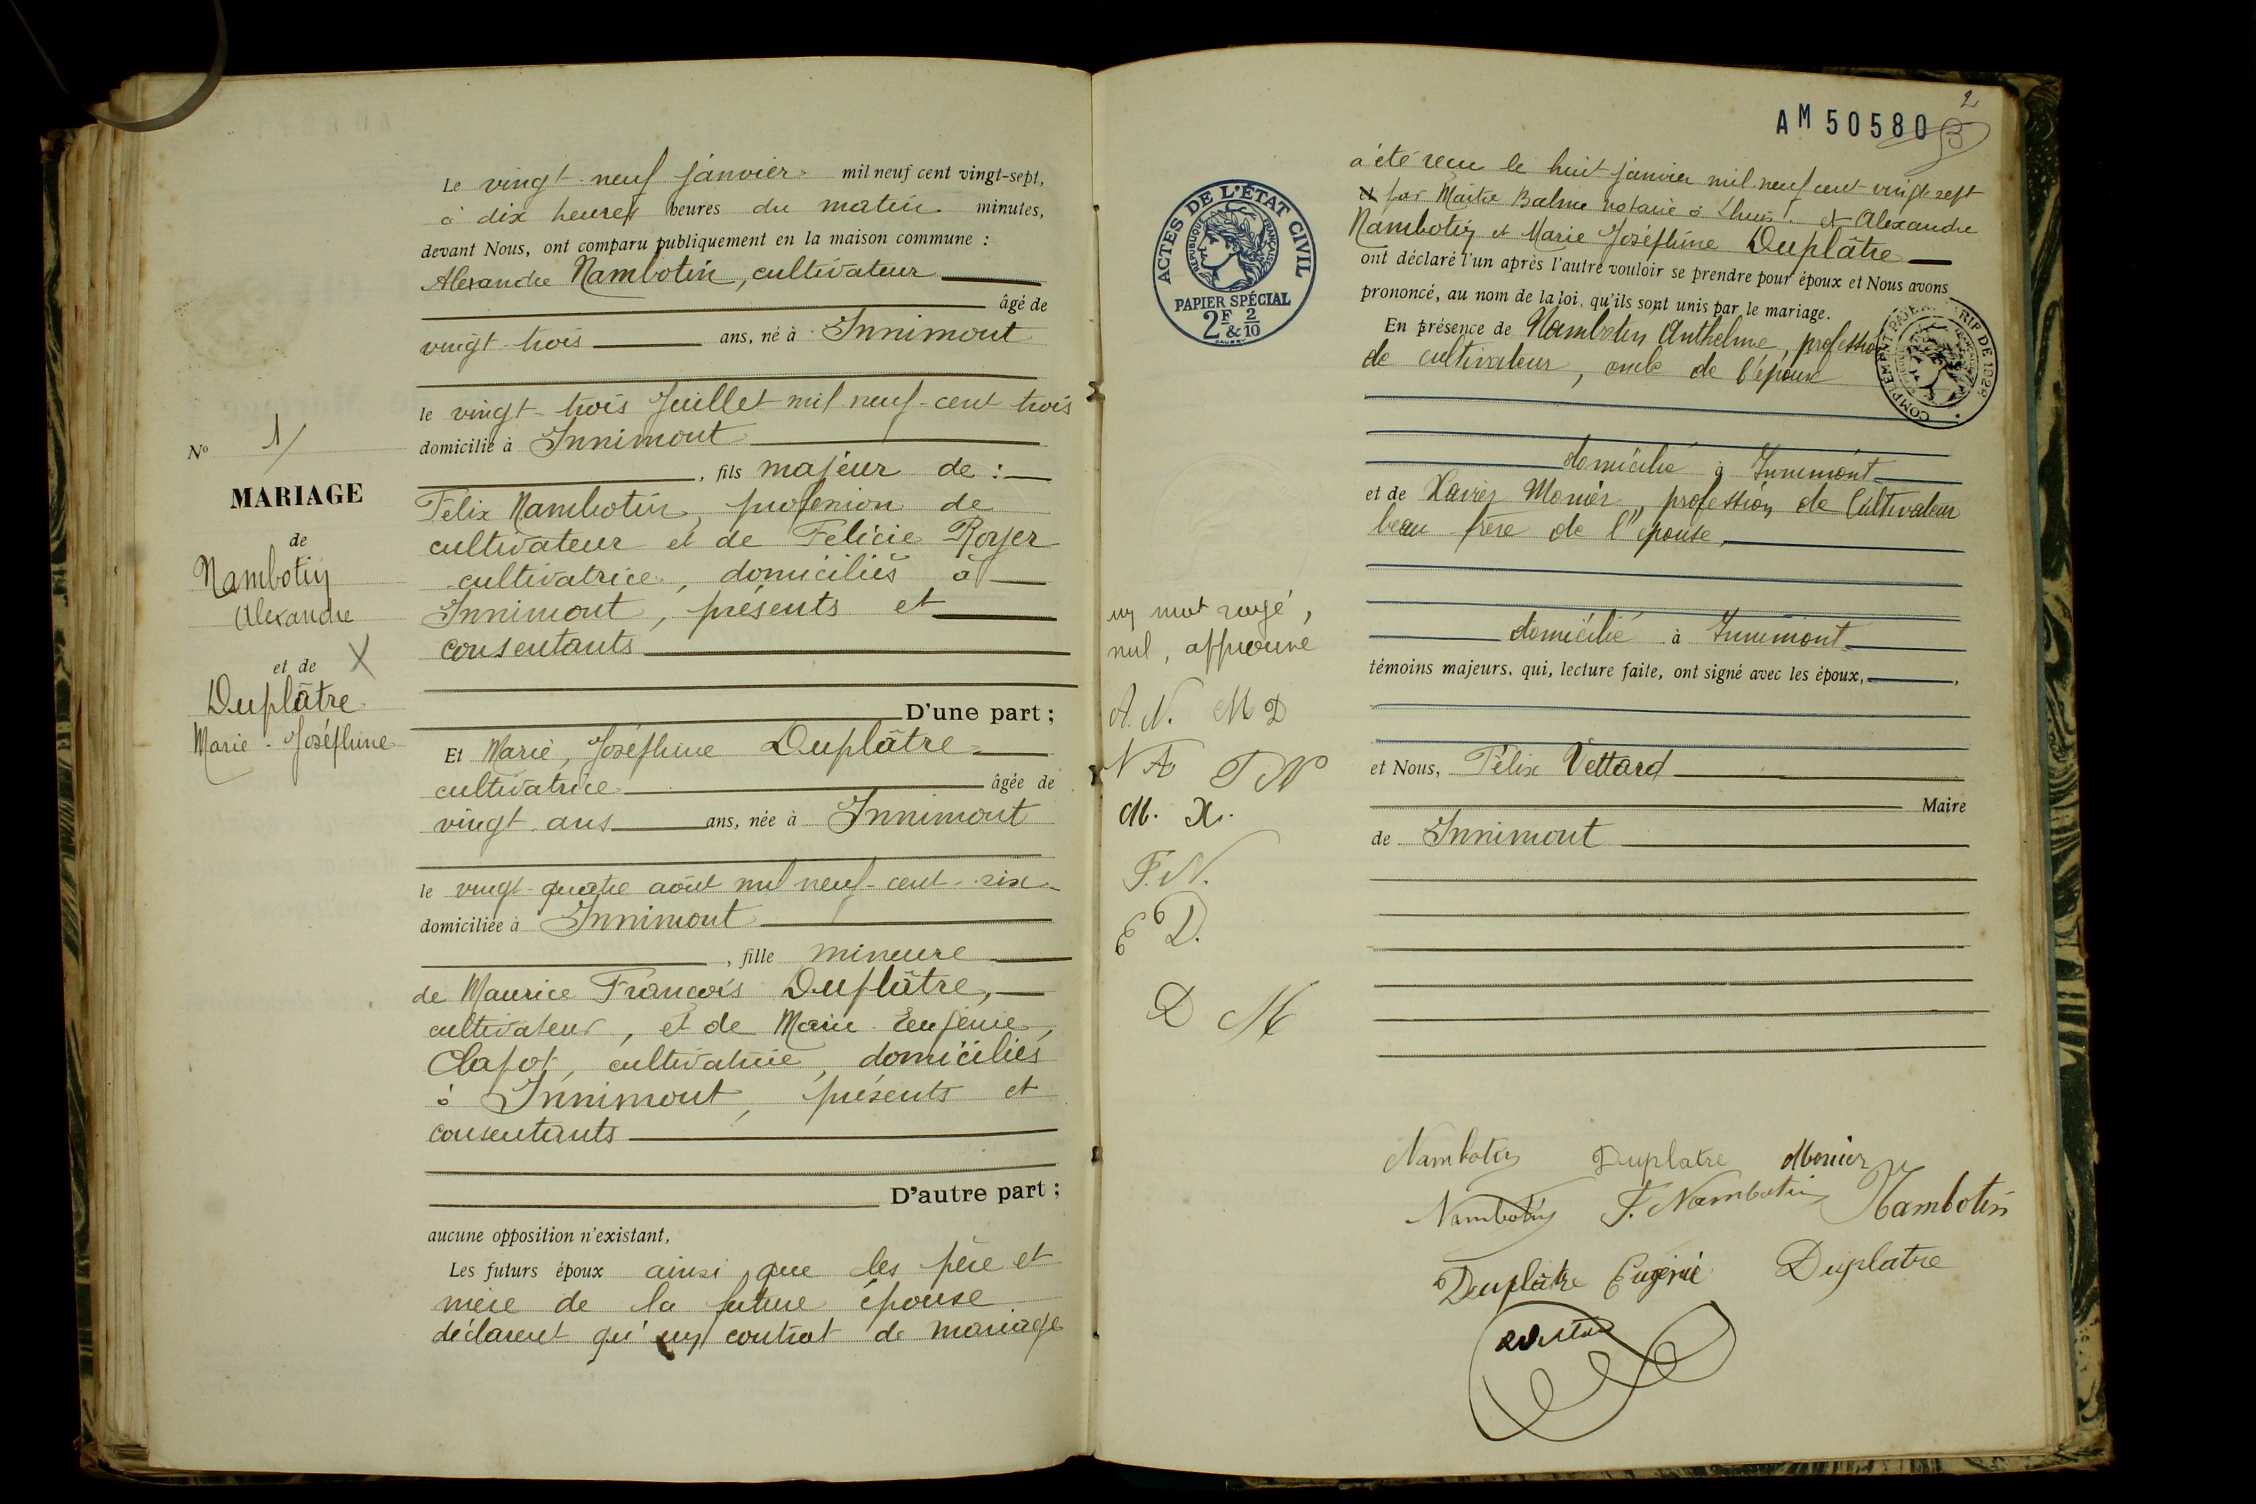 Nº 1/
MARIAGE
de
Nambotin
Alexandre
et de X
Duplâtre
Marie-Joséphine
Le vingt-neuf janvier mil neuf cent vingt-sept,
à dix heures heures du matin minutes,
devant Nous, ont comparu publiquement en la maison commune :
Alexandre Nambotin, cultivateur
âgé de
vingt-trois ans, né à Innimont
le vingt-trois Juillet mil neuf-cent trois
domicilié à Innimont
, fils majeur de :
Félix Nambotin, profession de
cultivateur et de Felicie Royer
cultivatrice, domiciliés à
Innimont, présents et
consentants
D'une part ;
Et Marie, Joséphine Duplâtre
cultivatrice âgée de
vingt ans ans, née à Innimont
le vingt-quatre août mil neuf-cent-six
domiciliée à Innimont
, fille mineure
de Maurice François Duplâtre,
cultivateur, et de Marie Eugénie,
Clapot, cultivatrice, domiciliés
à Innimont, présents et
consentants
D'autre part ;
aucune opposition n'existant,
Les futurs époux ainsi que les père et
mère de la future épouse
déclarent qu'un contrat de mariage
2
AM 50580
3
ACTES DE L'ÉTAT CIVIL
RÉPUBLIQUE FRANÇAISE
PAPIER SPÉCIAL
2F & 2/10
a été reçu le huit janvier mil neuf cent vingt-sept
et par Maître Balme notaire à Lhuis. et Alexandre
Nambotin et Marie Joséphine Duplâtre
ont déclaré l'un après l'autre vouloir se prendre pour époux et Nous avons
prononcé, au nom de la loi, qu'ils sont unis par le mariage.
COMPLÉMENT TARIF DE 1926
En présence de Nambotin Anthelme, profession
de cultivateur, oncle de l'époux
domicilié à Innimont
et de Xavier Monier, profession de Cultivateur
beau frère de l'épouse,
domicilié à Innimont
témoins majeurs, qui, lecture faite, ont signé avec les époux,
et Nous, Félix Vettard
Maire
de Innimont
un mot rayé,
nul, approuvé
A. N. M D
N A F N
M. X.
F. N.
E D.
D M
Nambotin Duplatre Monier
Nambotin F. Nambotin Nambotin
Duplâtre Eugénie Duplatre